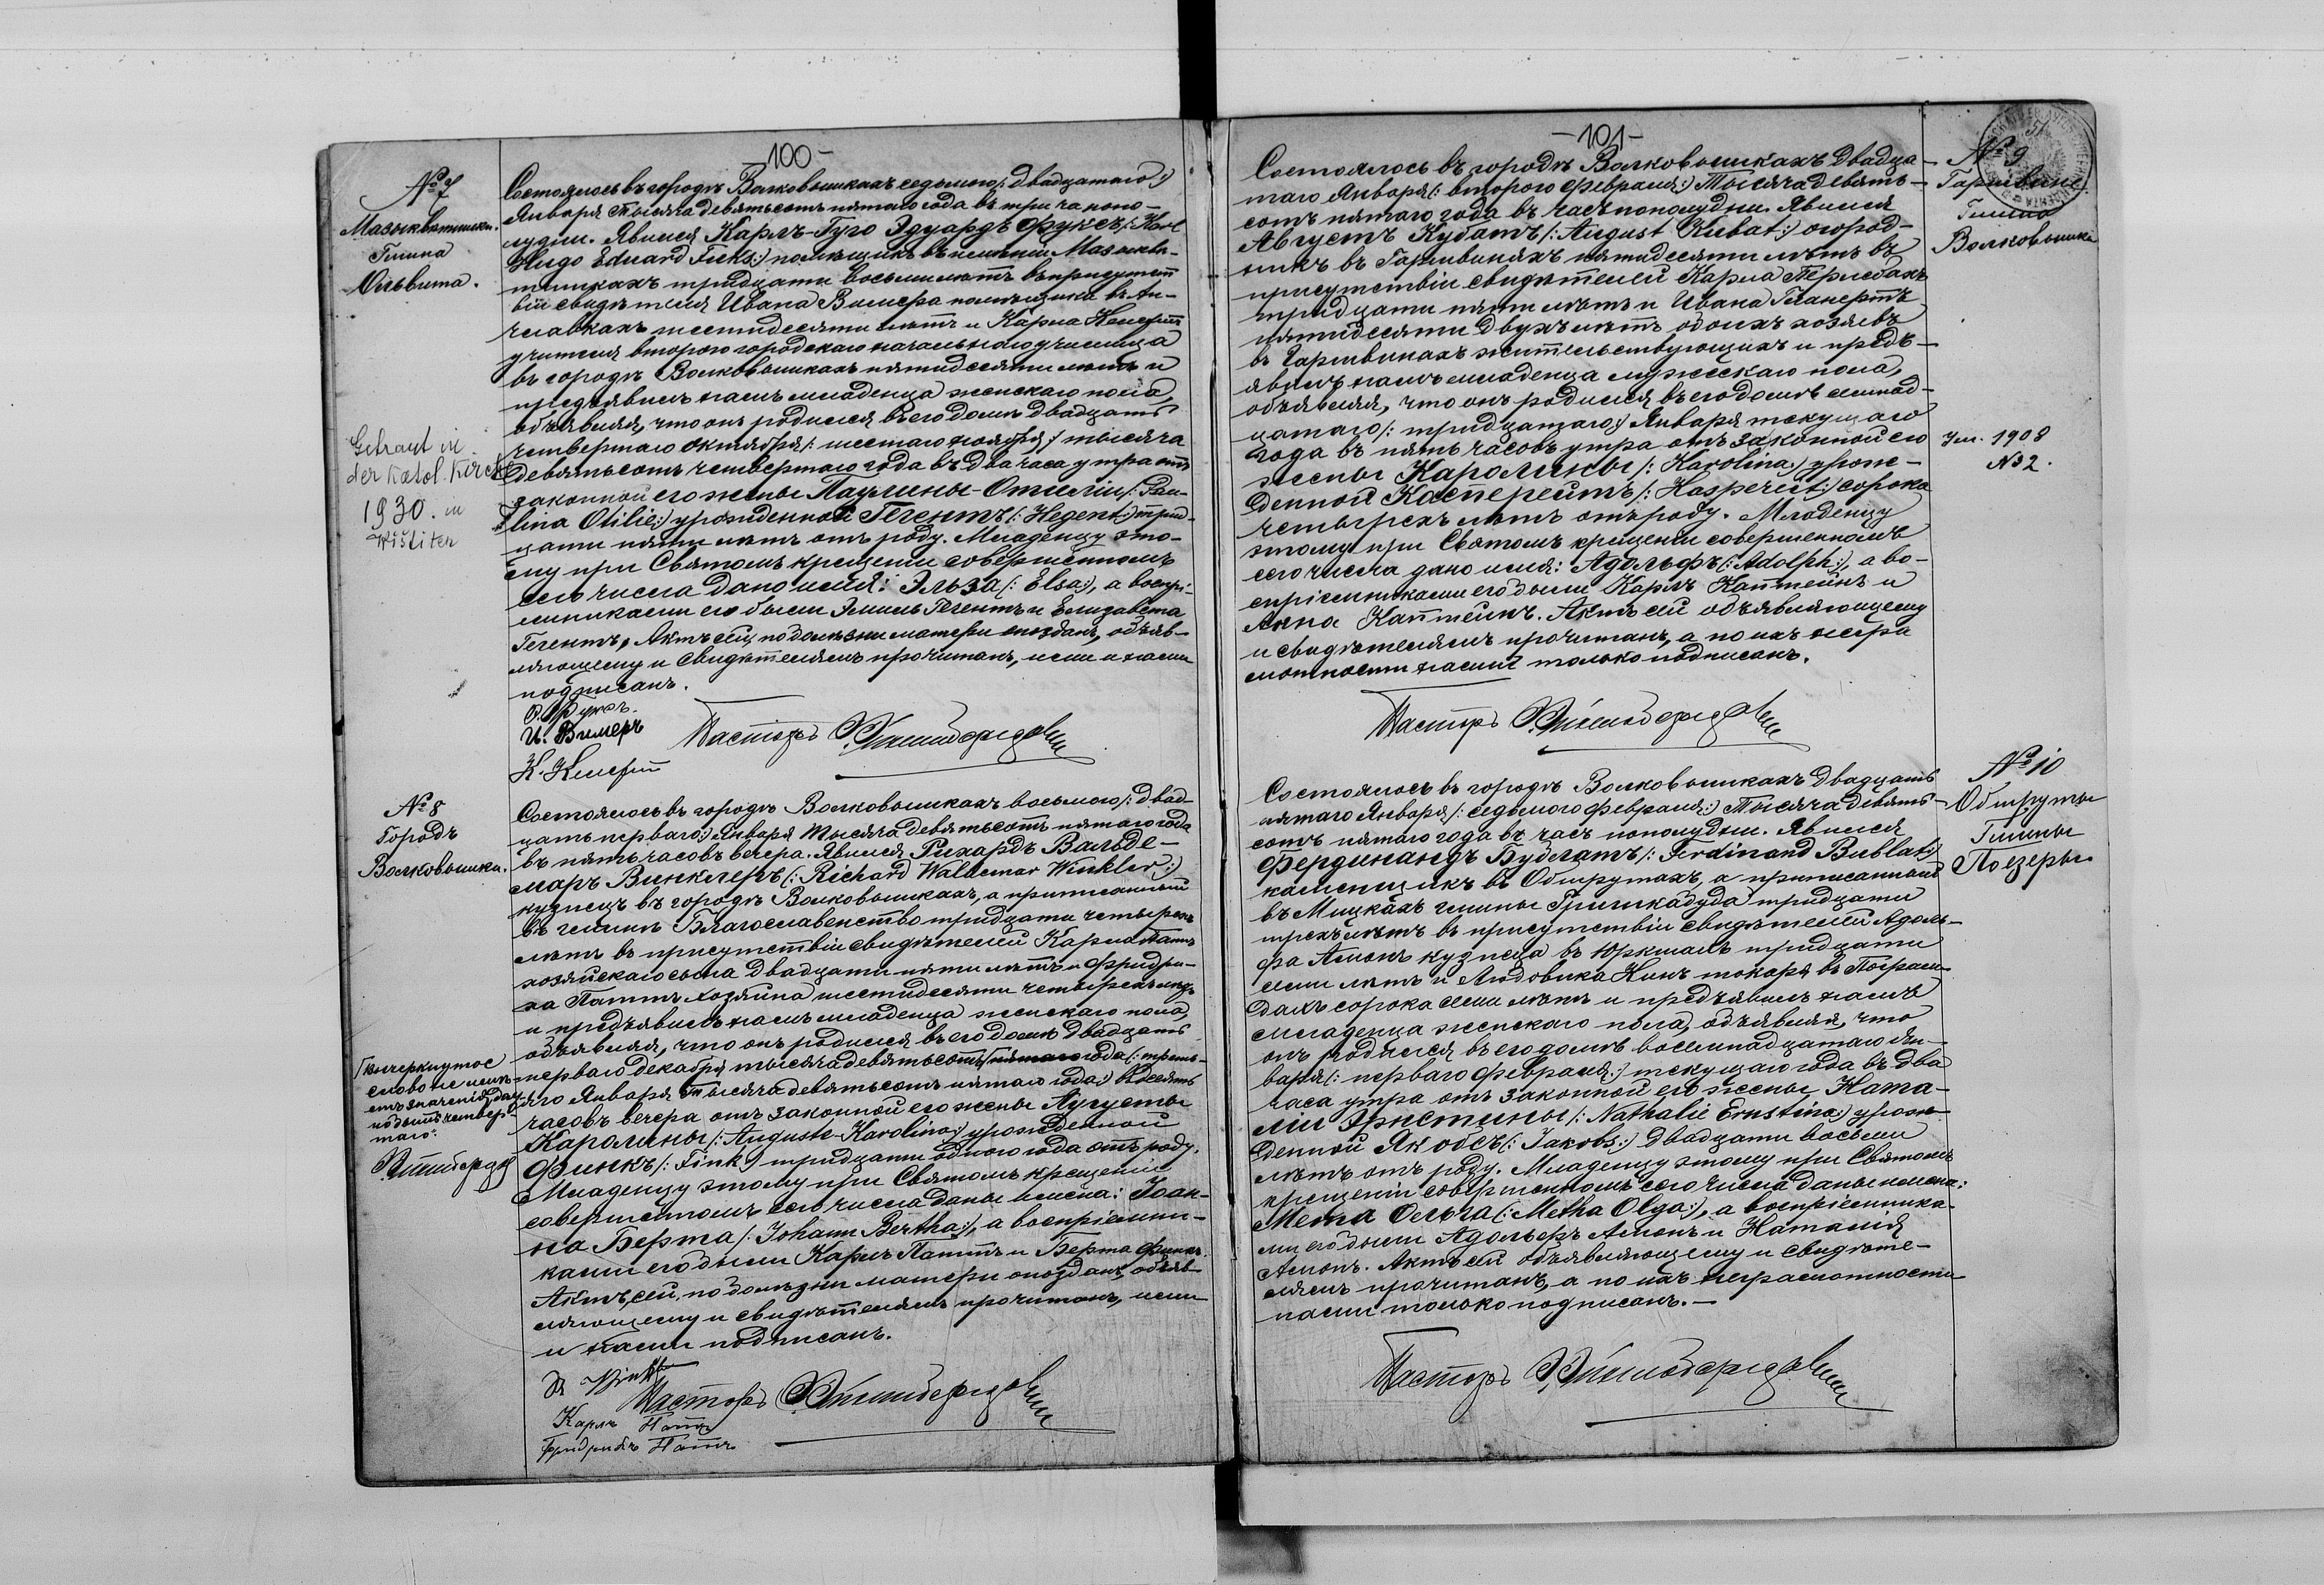 100-
№ 7
Мазыкятишки.
Гмина
Ольвита.
Состоялось въ городѣ Волковышкахъ седьмого /: двадцатаго :/
Января тысяча девятьсотъ пятаго года въ три часа попо-
лудни. Явился Карлъ-Гуго Эдуардъ Фуксъ /: Karl
Hugo Eduard Fuks :/ помѣщикъ въ имѣніи Мазыквя-
тишкахъ тридцати восьми лѣтъ въ присутст
віи свидѣтеля Ивана Вимера помѣщика въ Ан-
челавкахъ шестидесяти лѣтъ и Карла
учителя второго городскаго начальнаго училища
въ городѣ Волковышкахъ пятидесяти лѣтъ и
предъявилъ намъ младенца женскаго пола,
объявляя, что онъ родился въ его домѣ двадцать
четвертаго октября /: шестаго ноября :/ тысяча
девятьсотъ четвертаго года въ два часа утра отъ
законной его жены Паулины-Отиліи /: Pau-
lina Otilie :/ урожденной Гегентъ /: Hegent :/ трид-
цати пяти лѣтъ отъ роду. Младенцу это-
му при Святомъ крещеніи совершенномъ
сего числа дано имя: Эльза /: Elsa :/, а воспрі-
емниками его были Эмиль Гегентъ и Елизавета
Гегентъ. Актъ сей, по болѣзни матери опозданъ, объяв-
ляющему и свидѣтелямъ прочитанъ, ими и нами
подписанъ.
Getraut in
der katol. Kirche
1930. in
Wištiten
Фуксъ.
И. Вимеръ
К.
Пасторъ
№ 8
Городъ
Волковышки.
Состоялось въ городѣ Волковышкахъ восьмого /: двад-
цать перваго :/ Января тысяча девятьсотъ пятаго года
въ пять часовъ вечера. Явился Рихардъ Вальде-
маръ Винклеръ /: Richard Waldemar Winkler :/
кузнецъ въ городѣ Волковышкахъ, а приписанный
въ гминѣ Благославенство тридцати четырехъ
лѣтъ въ присутствіи свидѣтелей Карла Паттъ
хозяйскаго сына двадцати пяти лѣтъ и Фридри-
ха Паттъ хозяина шестидесяти четырехъ лѣтъ
и предъявилъ намъ младенца женскаго пола,
объявляя, что онъ родился въ его домѣ двадцать
перваго декабря тысяча девятьсотъ пятаго года /: треть-
яго Января тысяча девятьсотъ пятаго года :/ въ десять
часовъ вечера отъ законной его жены Аугусты
Каролины /: Auguste-Karolina :/ урожденной
Финкъ /: Fink :/ тридцати одного года отъ роду.
Младенцу этому при Святомъ крещеніи
совершенномъ сего числа даны имена: Іоан-
на Берта /: Johann Bertha :/, а воспріемни-
ками его были Карлъ Паттъ и Берта Финкъ.
Актъ сей, по болѣзни матери опозданъ, объяв-
ляющему и свидѣтелямъ прочитанъ, ими
и нами подписанъ.
вычеркнутое
слово не имѣ-
етъ значенія, дол
но быть четвер-
таго:
Карлъ Паттъ
Фридрихъ Паттъ
Пасторъ
-101-
№ 9
Гармвине
Гмина
Волковышки
Состоялось въ городѣ Волковышкахъ двадца-
таго Января /: второго Февраля :/ тысяча девять-
сотъ пятаго года въ часъ пополудни. Явился
Августъ Кубатъ /: August Kubat :/ огород-
никъ въ Гармвиняхъ пятидесяти лѣтъ въ
присутствіи свидѣтелей Карла Перлебахъ
тридцати пяти лѣтъ и Ивана Гланертъ
пятидесяти двухъ лѣтъ обоихъ хозяевъ
въ Гармвинахъ жительствующихъ и предъ-
явилъ намъ младенца мужескаго пола,
объявляя, что онъ родился въ его домѣ семнад-
цатаго /: тридцатаго :/ Января текущаго
года въ пять часовъ утра отъ законной его
жены Каролины /: Karolina :/ урож-
денной Касперейтъ /: Kaspereit :/ сорока
четырехъ лѣтъ отъ роду. Младенцу
этому при Святомъ крещеніи совершенномъ
сего числа дано имя: Адольфъ /: Adolph :/, а во-
спріемниками его были Карлъ Каптейнъ и
Анна Каптейнъ. Актъ сей объявляющему
и свидѣтелямъ прочитанъ, а по ихъ негра
мотности нами только подписанъ.
Ум. 1908
№ 2.
Пасторъ
№ 10
Обшруты
Гмины
Поезеры
Состоялось въ городѣ Волковышкахъ двадцать
пятаго Января /: седьмого Февраля :/ тысяча девять-
сотъ пятаго года въ часъ пополудни. Явился
Фердинандъ Бублатъ /: Ferdinand Bublat :/
каменщикъ въ Обшрутахъ, а приписанный
въ Мицкахъ гмины Гришкабуда тридцати
трехъ лѣтъ въ присутствіи свидѣтелей Адоль-
фа Амонъ кузнеца въ Юркшахъ тридцати
семи лѣтъ и Людовика Кинъ токаря въ Пограм-
дахъ сорока семи лѣтъ и предъявилъ намъ
младенца женскаго пола, объявляя, что
онъ родился въ его домѣ восемнадцатаго Ян-
варя /: перваго Февраля :/ текущаго года въ два
часа утра отъ законной его жены Ната-
ліи Эрнстины /: Nathalie Ernstina :/ урож-
денной Якобсъ /: Jakobs :/ двадцати восьми
лѣтъ отъ роду. Младенцу этому при Святомъ
крещеніи совершенномъ сего числа даны имена:
Мета Ольга /: Metha Olga :/, а воспріемника-
ми его были Адольфъ Амонъ и Наталія
Амонъ. Актъ сей объявляющему и свидѣте-
лямъ прочитанъ, а по ихъ неграмотности
нами только подписанъ. —
Пасторъ